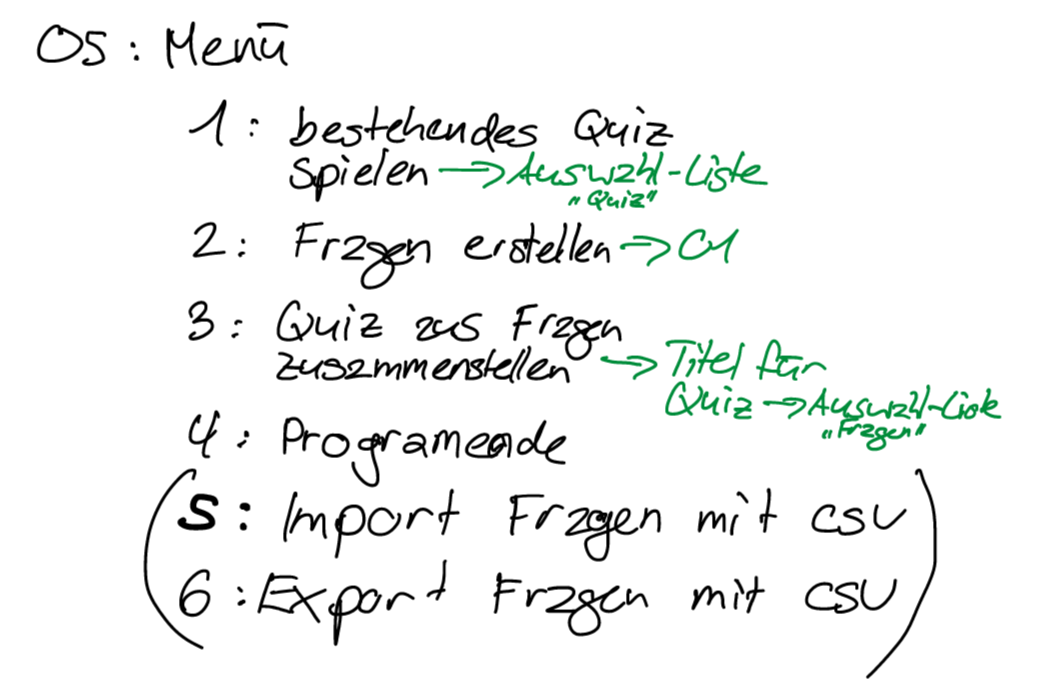 05: Menü
1: bestehendes Quiz
spielen → Auswahl-Liste
"Quiz"
2: Fragen erstellen → 01
3: Quiz aus Fragen
zusammenstellen → Titel für
Quiz → Auswahl-Liste
"Fragen"
4: Programende
(5: Import Fragen mit csv
6: Export Fragen mit csv)